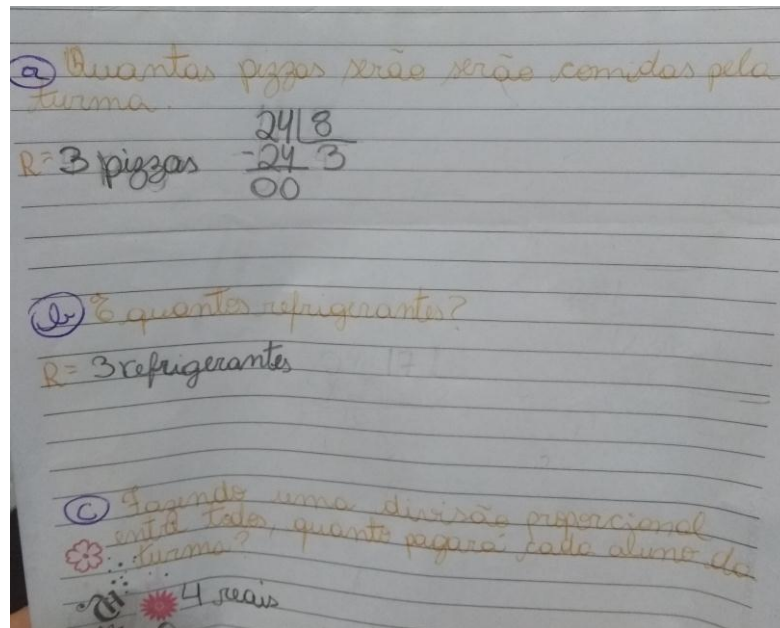 a Quantas pizzas serão serão comidas pela
turma.
24 8
R= 3 pizzas -24 3
00
b E quantos refrigerantes?
R= 3 refrigerantes
c Fazendo uma divisão proporcional
entre todos, quanto pagará cada aluno da
turma?
4 reais